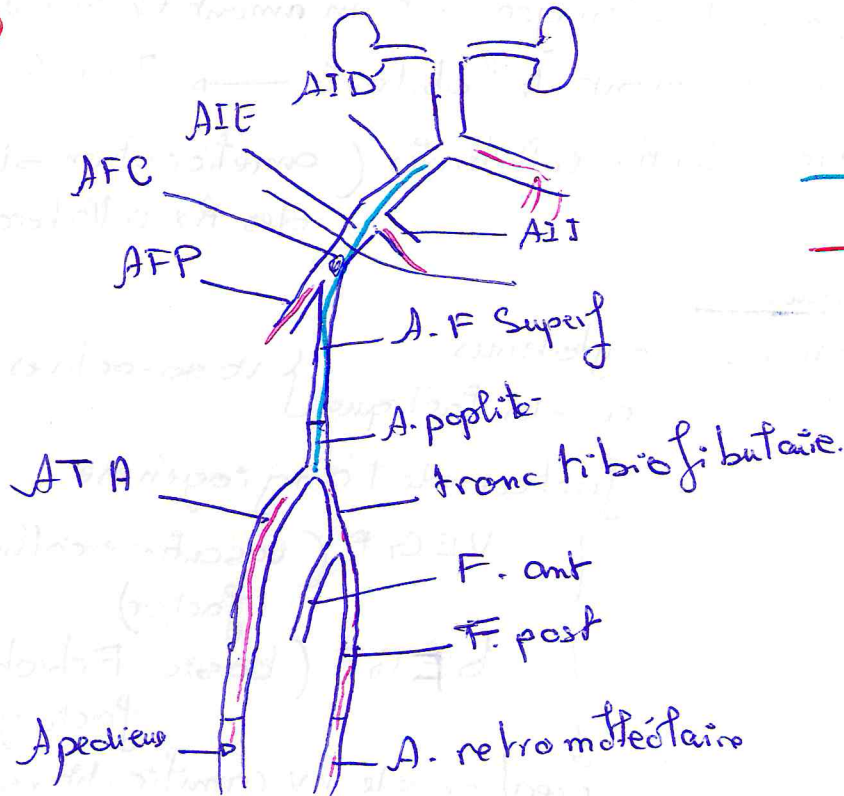 AID
AIE
AFC
AII
AFP
A. F Superf
A. poplité
ATA
tronc tibiofibulaire.
F. ant
F. post
A pedieus
A. retro malléolaire